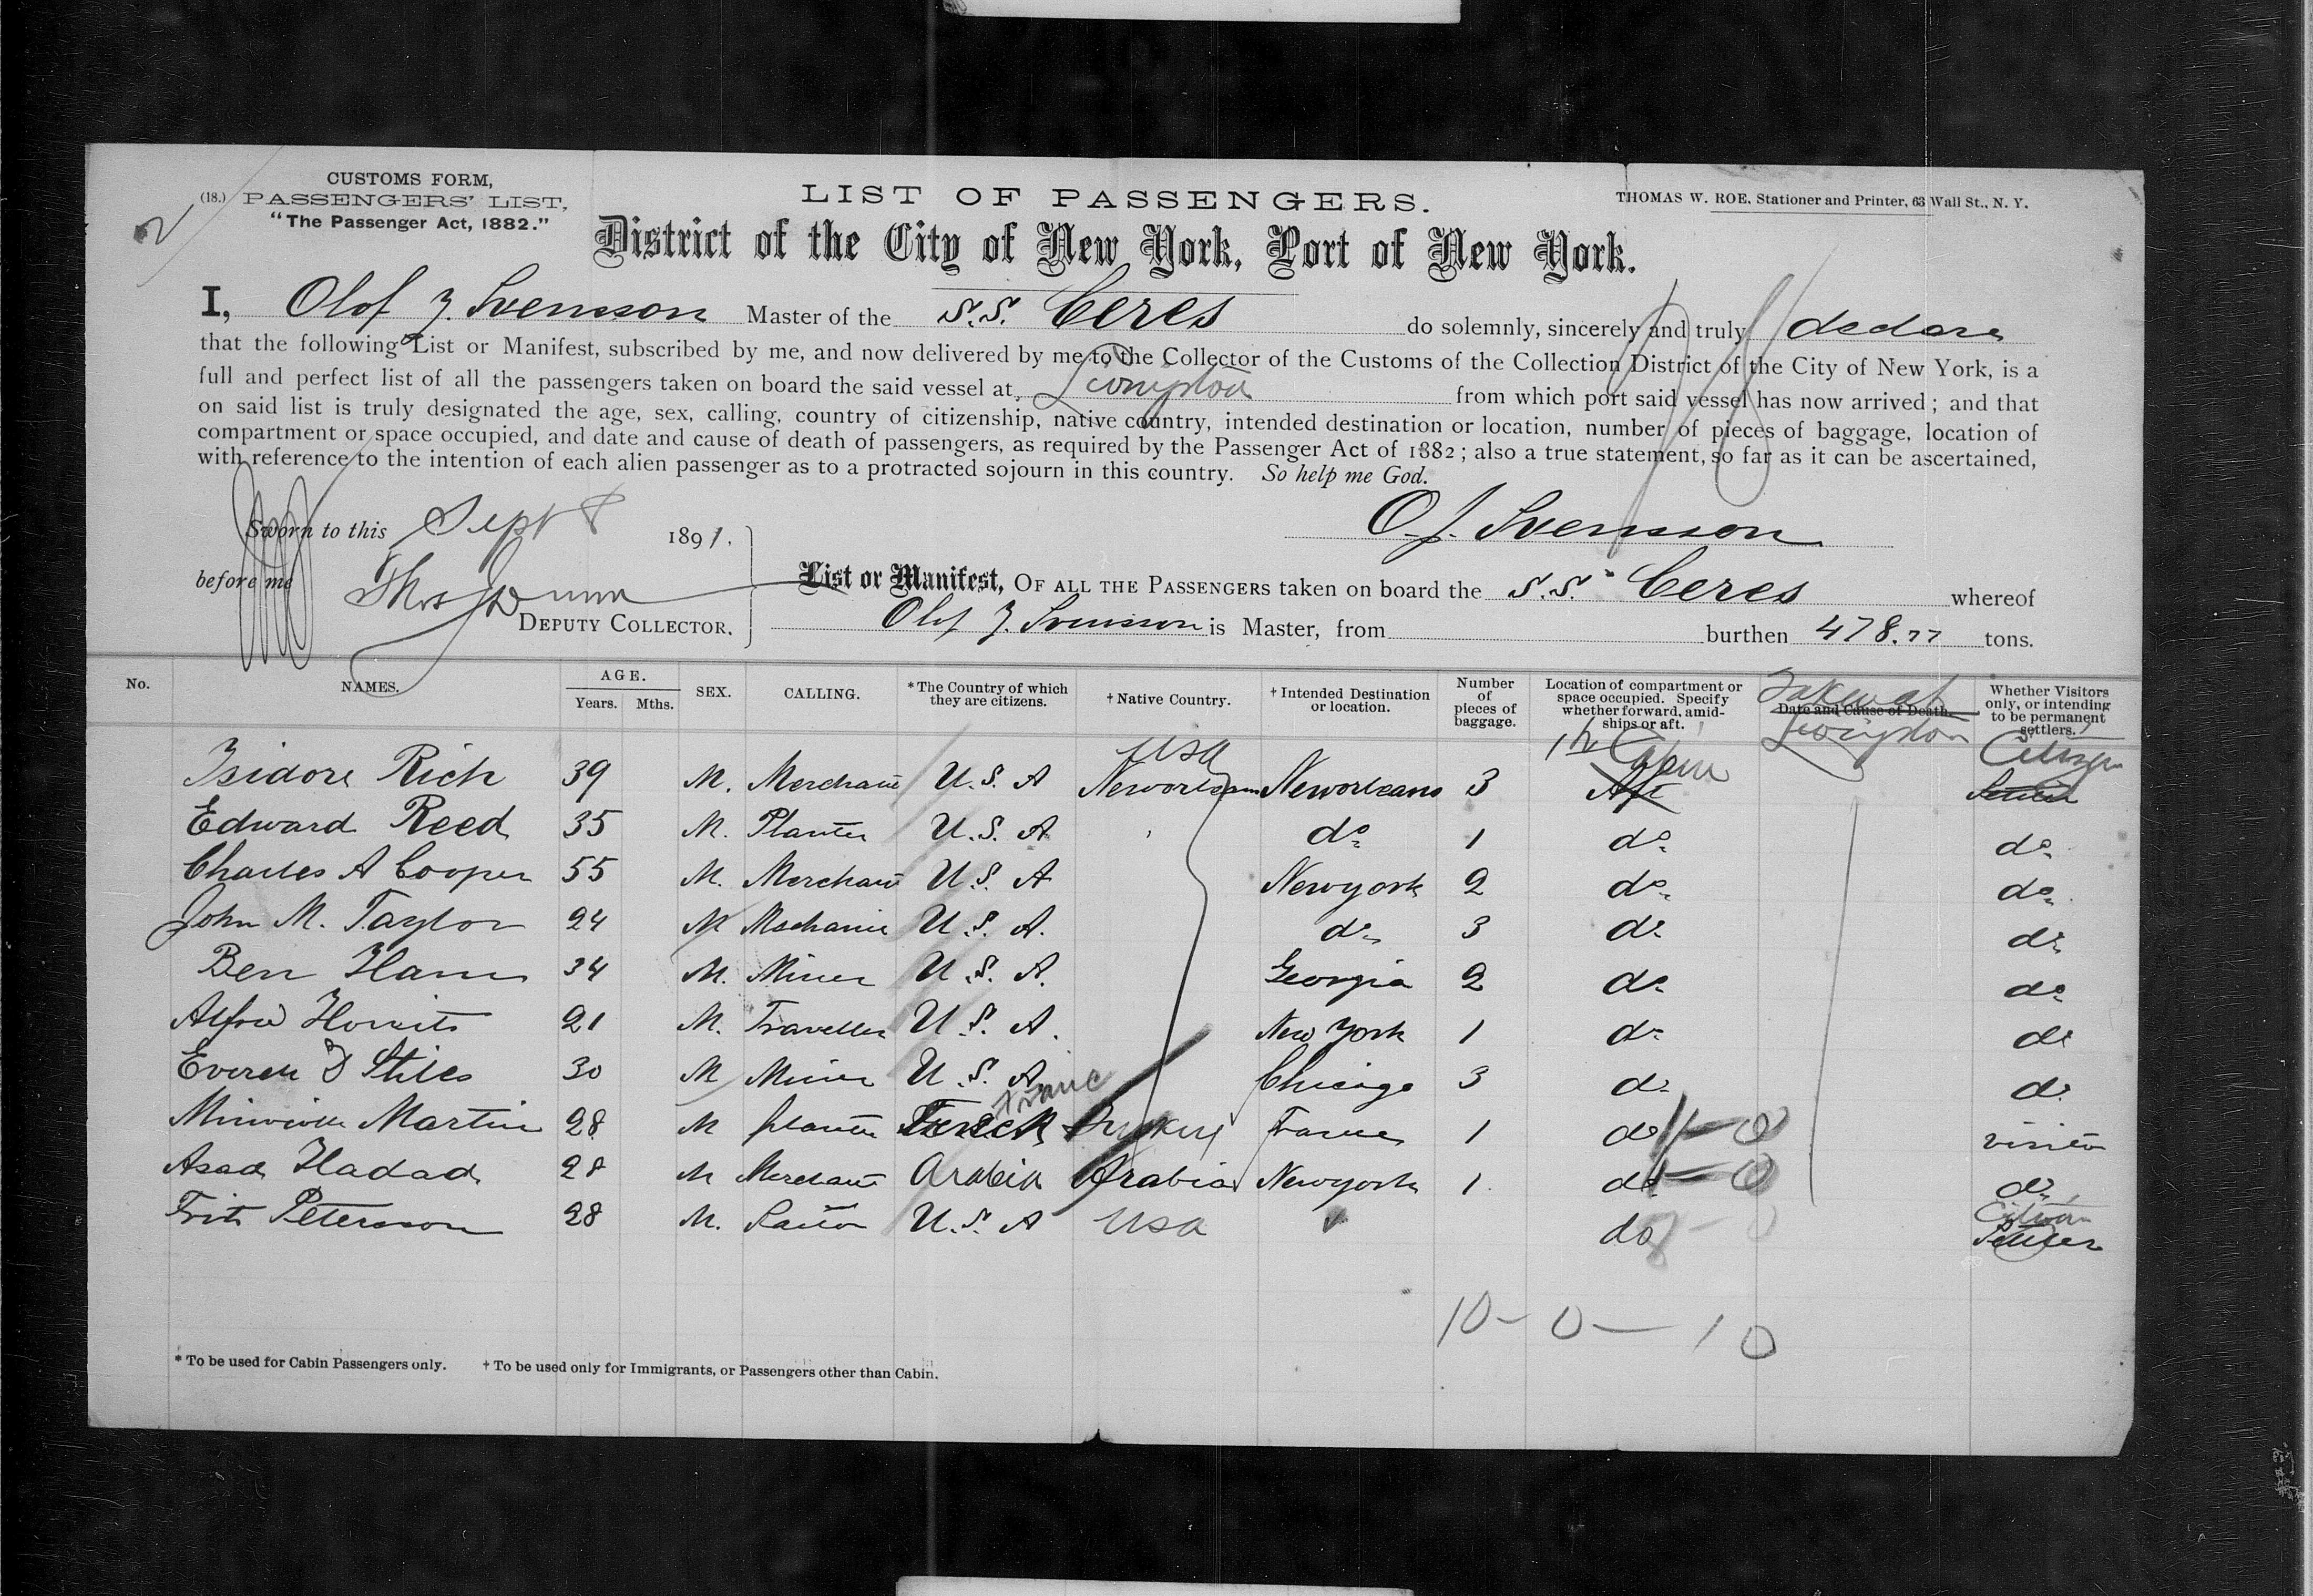 2
CUSTOMS FORM,
(18.) PASSENGERS' LIST,
"The Passenger Act, 1882."
LIST OF PASSENGERS.
THOMAS W. ROE, Stationer and Printer, 63 Wall St., N. Y.
District of the City of New York, Port of New York.
I, Olof J. Svensson Master of the S.S. Ceres do solemnly, sincerely and truly declare
that the following List or Manifest, subscribed by me, and now delivered by me to the Collector of the Customs of the Collection District of the City of New York, is a
full and perfect list of all the passengers taken on board the said vessel at, Livingston from which port said vessel has now arrived; and that
on said list is truly designated the age, sex, calling, country of citizenship, native country, intended destination or location, number of pieces of baggage, location of
compartment or space occupied, and date and cause of death of passengers, as required by the Passenger Act of 1882; also a true statement, so far as it can be ascertained,
with reference to the intention of each alien passenger as to a protracted sojourn in this country. So help me God.
Sworn to this Sept 8 1891.
O. J. Svensson
before me Thos Dunn
DEPUTY COLLECTOR.
List or Manifest, OF ALL THE PASSENGERS taken on board the S.S. Ceres whereof
Olof J. Svensson is Master, from burthen 478.77 tons.
No. NAMES. AGE. Years. Mths. SEX. CALLING. *The Country of which they are citizens. †Native Country. †Intended Destination or location. Number of pieces of baggage. Location of compartment or space occupied. Specify whether forward, amidships or aft. Date and Cause of Death. Whether Visitors only, or intending to be permanent settlers.
Taken at Livingston
USA 1st Cabin Citizen
Isidore Rich 39 M. Merchant U.S. A Neworleans Neworleans 3 Aft Settler
Edward Reed 35 M. Planter U.S. A do 1 do do
Charles A Cooper 55 M. Merchant U.S. A Newyork 2 do do
John M. Taylor 24 M Mechanic U.S. A. do 3 do do
Ben Ham 34 M. Miner U.S. A. Georgia 2 do do
Alfred 21 M. Traveller U.S. A. New York 1 do do
Everett D Stiles 30 M Miner U.S. A Chicago 3 do do
France
Martin 28 M planter French France 1 do 1-0 visitor
Asad Hadad 28 M Merchant Arabia Arabia Newyork 1. do 1-0 do
Citizen
Fritz Petersson 28 M. Sailor U.S. A USA do 8-0 Settler
10-0-10
* To be used for Cabin Passengers only. † To be used only for Immigrants, or Passengers other than Cabin.